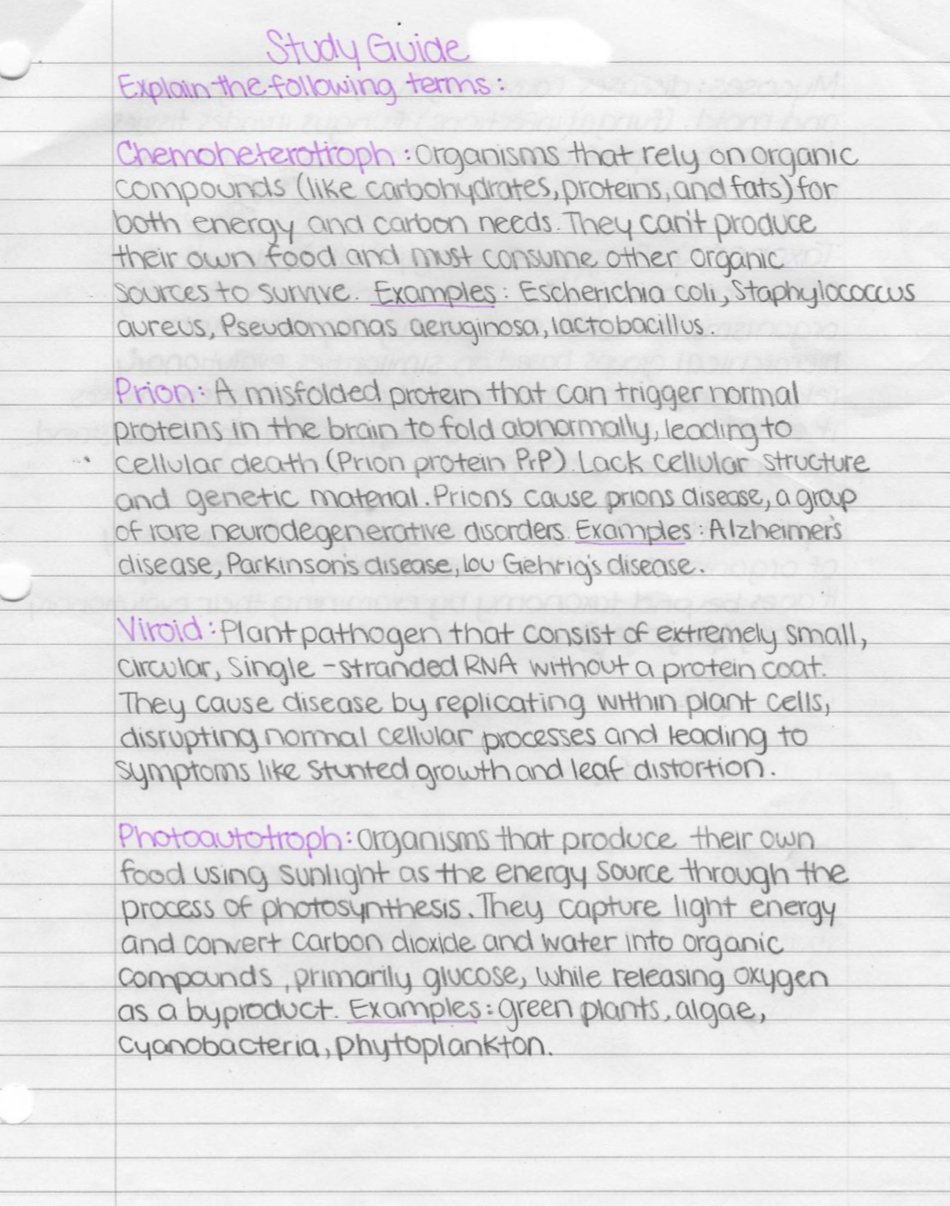 Study Guide
Explain the following terms:
Chemoheterotroph: Organisms that rely on organic
compounds (like carbohydrates, proteins, and fats) for
both energy and carbon needs. They can't produce
their own food and must consume other organic
sources to survive. Examples: Escherichia coli, Staphylococcus
aureus, Pseudomonas aeruginosa, lactobacillus.
Prion: A misfolded protein that can trigger normal
proteins in the brain to fold abnormally, leading to
cellular death (Prion protein PrP). Lack cellular structure
and genetic material. Prions cause prions disease, a group
of rare neurodegenerative disorders. Examples: Alzheimer's
disease, Parkinson's disease, Lou Gehrig's disease.
Viroid: Plant pathogen that consist of extremely small,
circular, single-stranded RNA without a protein coat.
They cause disease by replicating within plant cells,
disrupting normal cellular processes and leading to
symptoms like stunted growth and leaf distortion.
Photoautotroph: Organisms that produce their own
food using sunlight as the energy source through the
process of photosynthesis. They capture light energy
and convert carbon dioxide and water into organic
compounds, primarily glucose, while releasing oxygen
as a byproduct. Examples: green plants, algae,
cyanobacteria, phytoplankton.